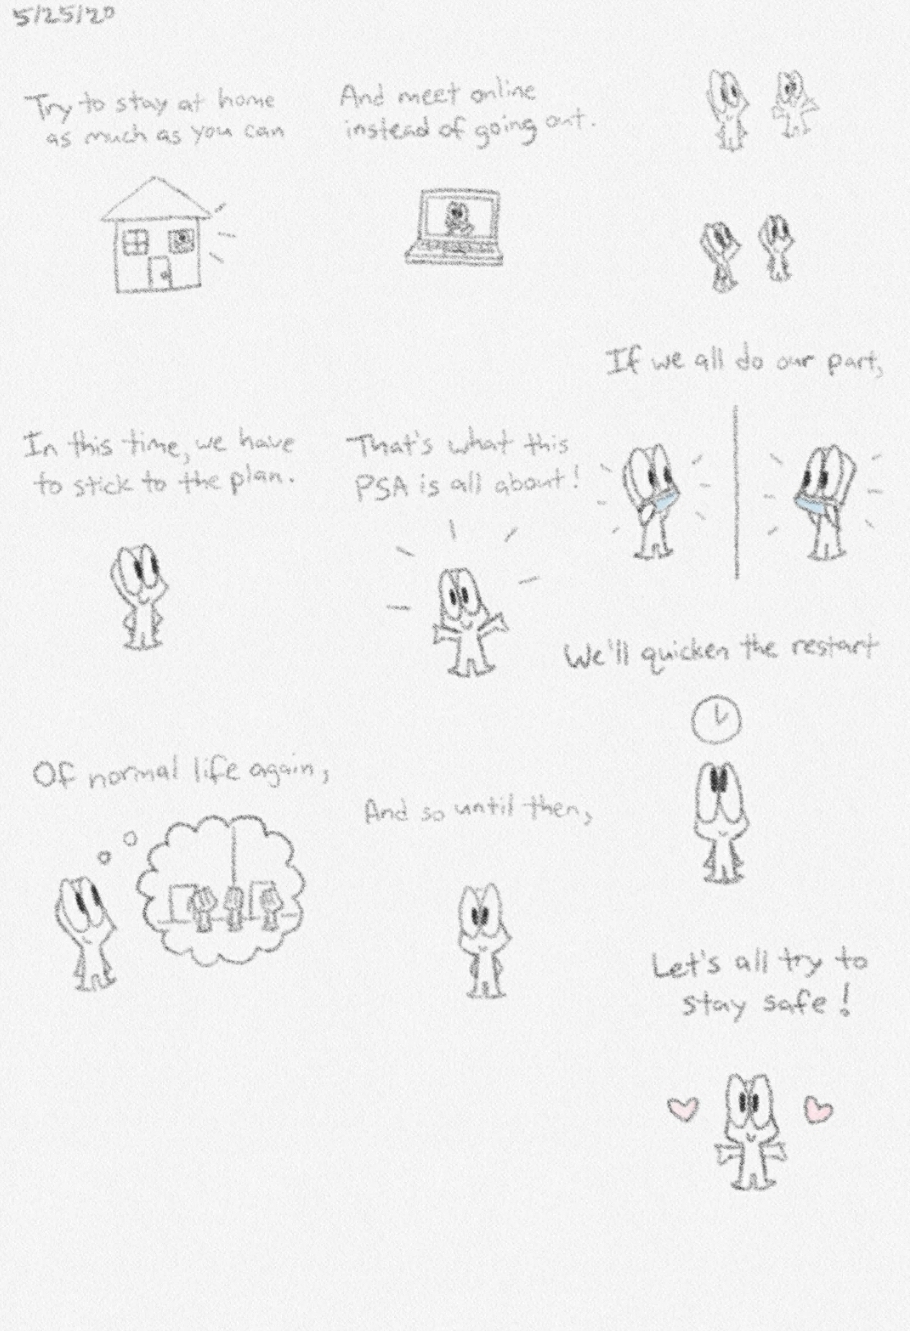 5/25/20
Try to stay at home
as much as you can
And meet online
instead of going out.
In this time, we have
to stick to the plan.
That's what this
PSA is all about!
If we all do our part,
We'll quicken the restart
Of normal life again,
And so until then,
Let's all try to
stay safe!